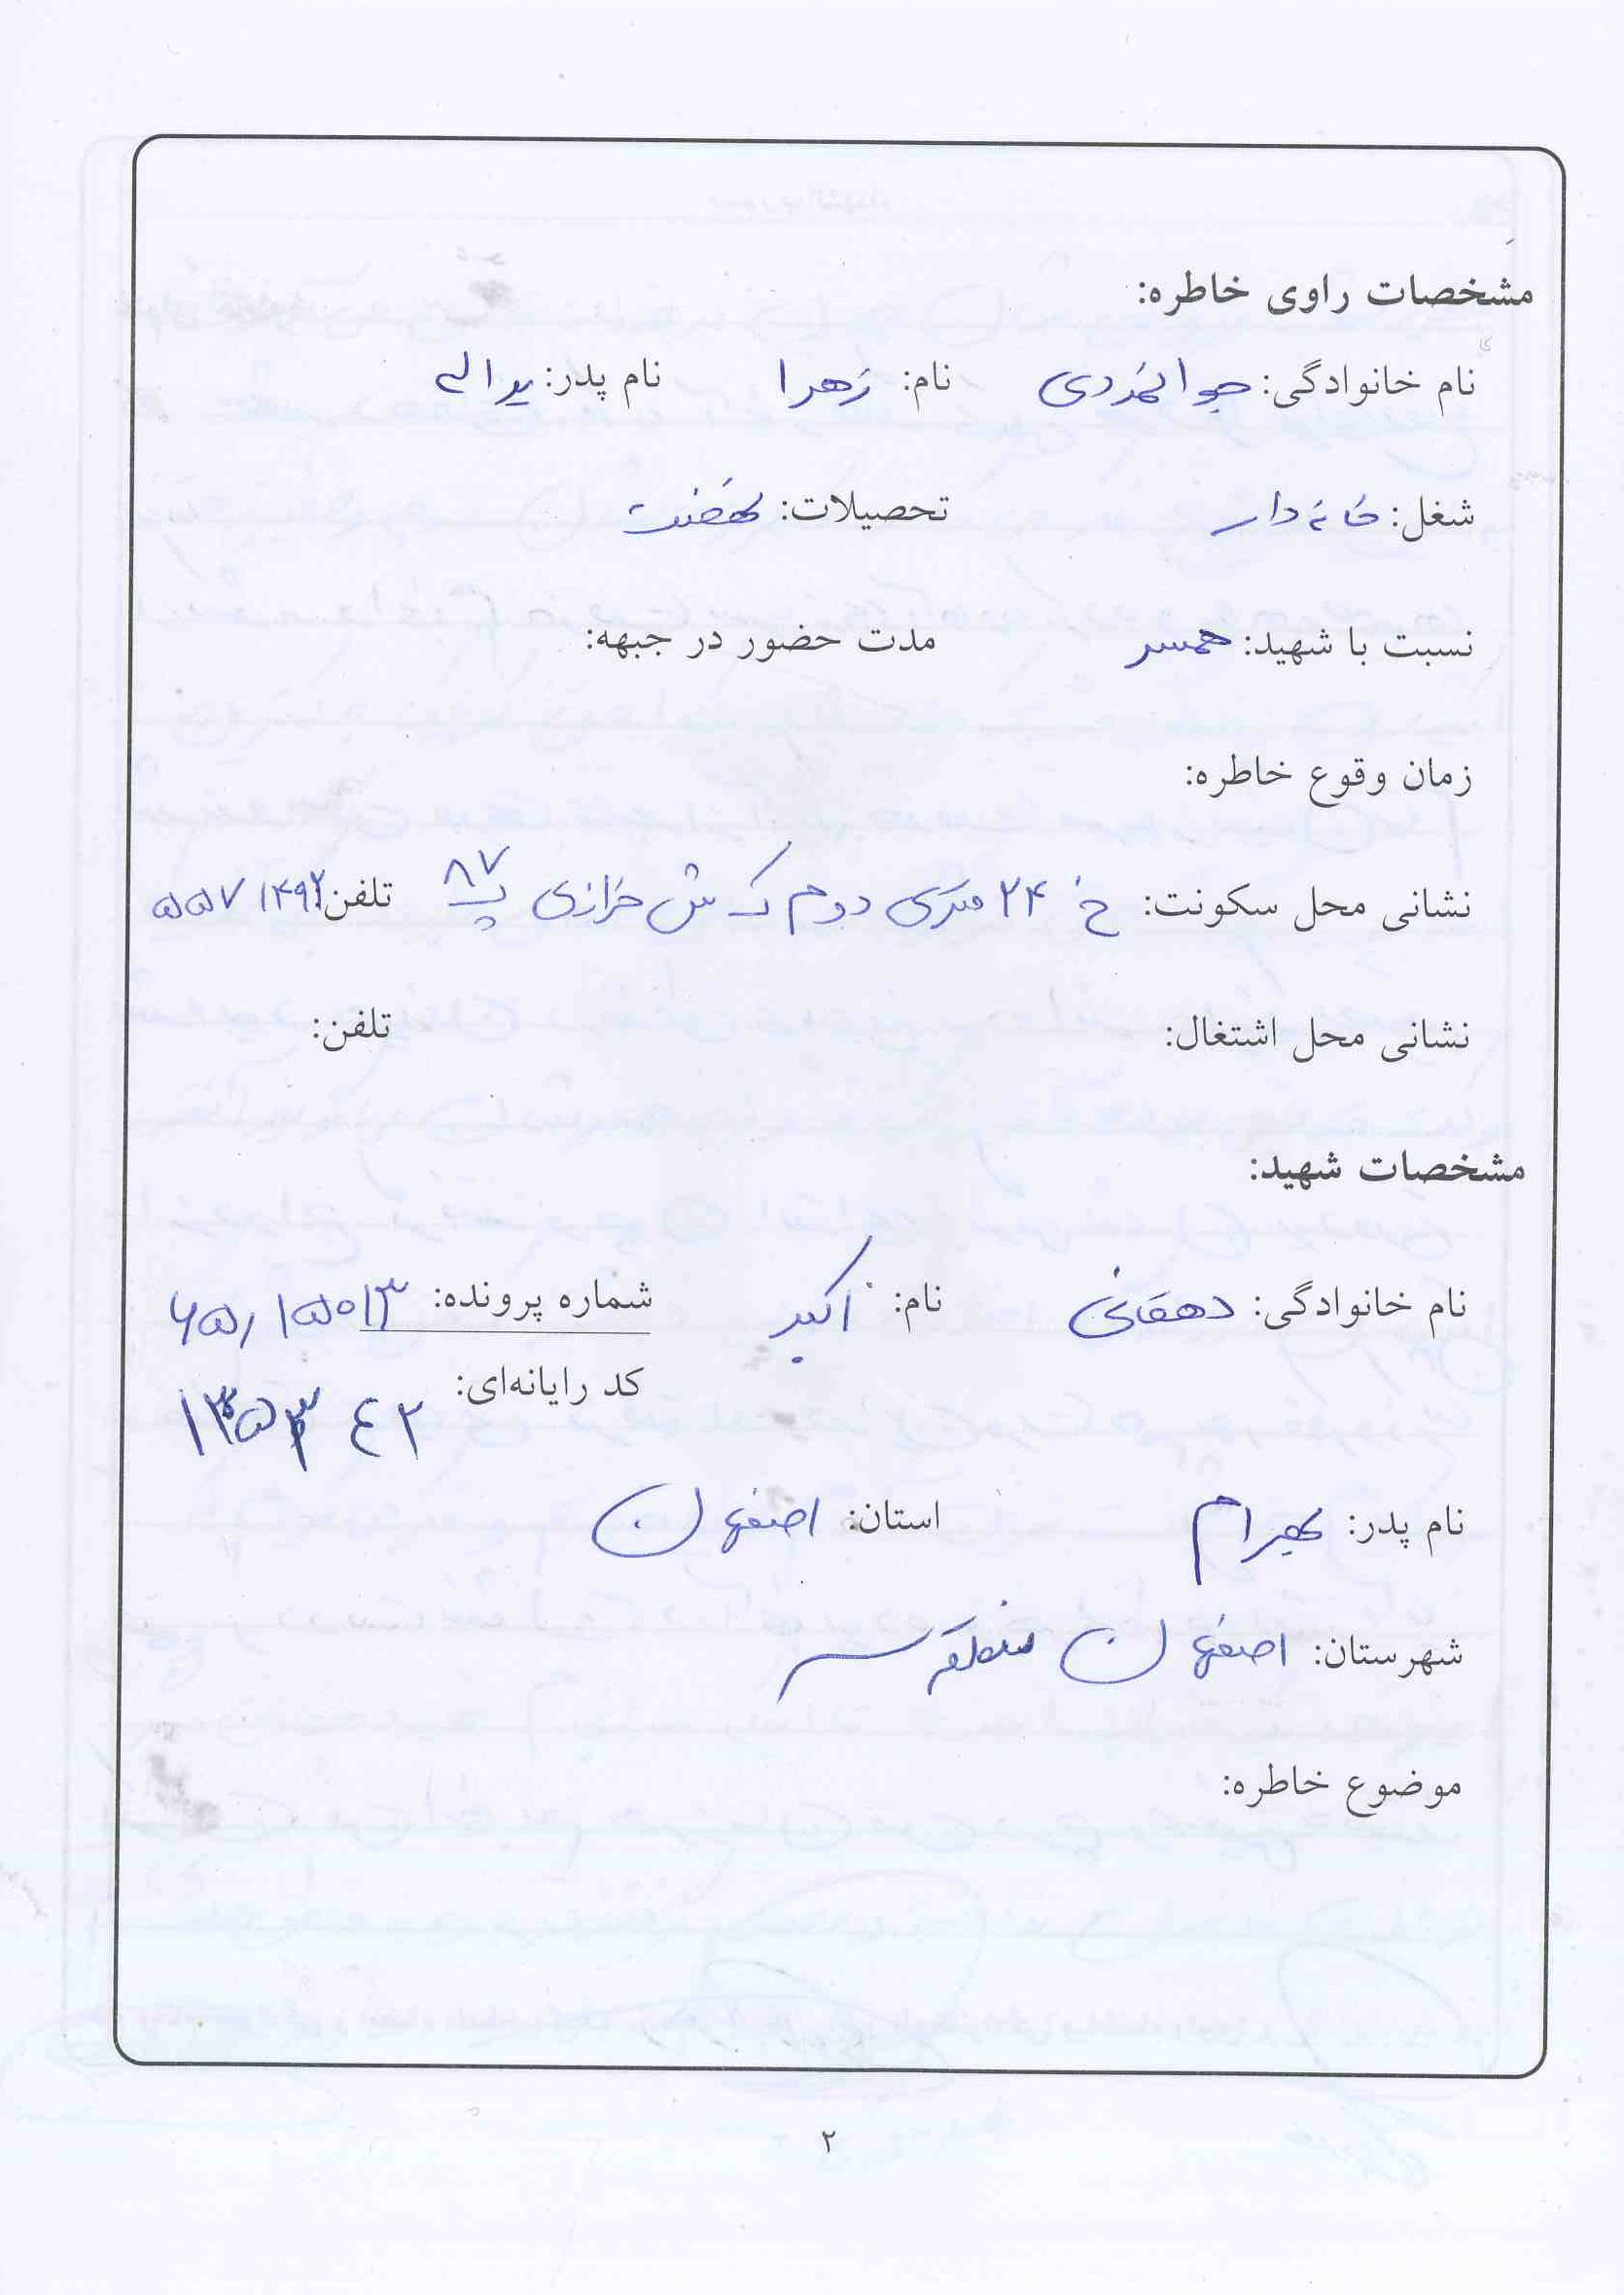 مشخصات راوی خاطره:
نام خانوادگی: جوانمردی نام: زهرا نام پدر: یداله
شغل: خانه دار تحصیلات: نهضت
نسبت با شهید: همسر مدت حضور در جبهه:
زمان وقوع خاطره:
نشانی محل سکونت: خ ۲۴ متری دوم ک ش خرازی پ ۸۷ تلفن: ۵۵۷۱۴۹۲
نشانی محل اشتغال: تلفن:
مشخصات شهید:
نام خانوادگی: دهقانی نام: اکبر شماره پرونده: ۶۵/۱۵۰۱۳
کد رایانه‌ای:
نام پدر: بهرام استان: اصفهان
شهرستان: اصفهان منطقه سه
موضوع خاطره:
۲